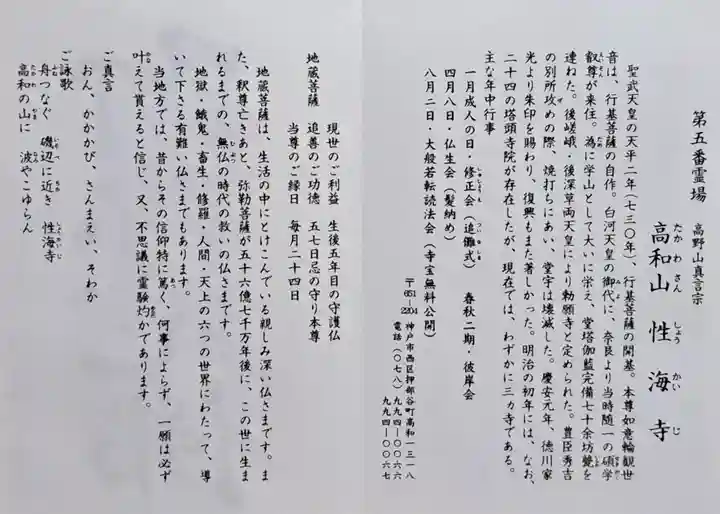 第五番霊場
高野山真言宗
高和山 性海寺
聖武天皇の天平二年(七三〇年)、行基菩薩の開基。本尊如意輪観世
音は、行基菩薩の自作。白河天皇の御代に、奈良より当時随一の碩学
叡尊が来住。為に学山として大いに栄え、堂塔伽藍完備七十余坊甍を
連ねた。後嵯峨・後深草両天皇により勅願寺と定められた。豊臣秀吉
の別所攻めの際、焼打ちにあい、堂宇は壊滅した。慶安元年、徳川家
光より朱印を賜わり、復興もまた著しかった。明治の初年には、なお、
二十四の塔頭寺院が存在したが、現在では、わずかに三ヵ寺である。
主な年中行事
一月成人の日・修正会(追儺式) 春秋二期・彼岸会
四月八日・仏生会(髪納め)
八月二日・大般若転読法会(寺宝無料公開)
〒651-2204 神戸市西区押部谷町高和一三一八
電話(〇七八)九九四-〇〇六六
九九四-〇〇六七
現世のご利益 生後五年目の守護仏
地蔵菩薩 追善のご功徳 五七日忌の守り本尊
当尊のご縁日 毎月二十四日
地蔵菩薩は、生活の中にとけこんでいる親しみ深い仏さまです。ま
た、釈尊亡きあと、弥勒菩薩が五十六億七千万年後に、この世に生ま
れるまでの、無仏の時代の救いの仏さまです。
地獄・餓鬼・畜生・修羅・人間・天上の六つの世界にわたって、導
いて下さる有難い仏さまでもあります。
当地方では、昔からその信仰特に篤く、何事によらず、一願は必ず
叶えて貰えると信じ、又、不思議に霊験灼かであります。
ご真言
おん、かかかび、さんまえい、そわか
ご詠歌
舟つなぐ 磯辺に近き 性海寺
高和の山に 波やこゆらん